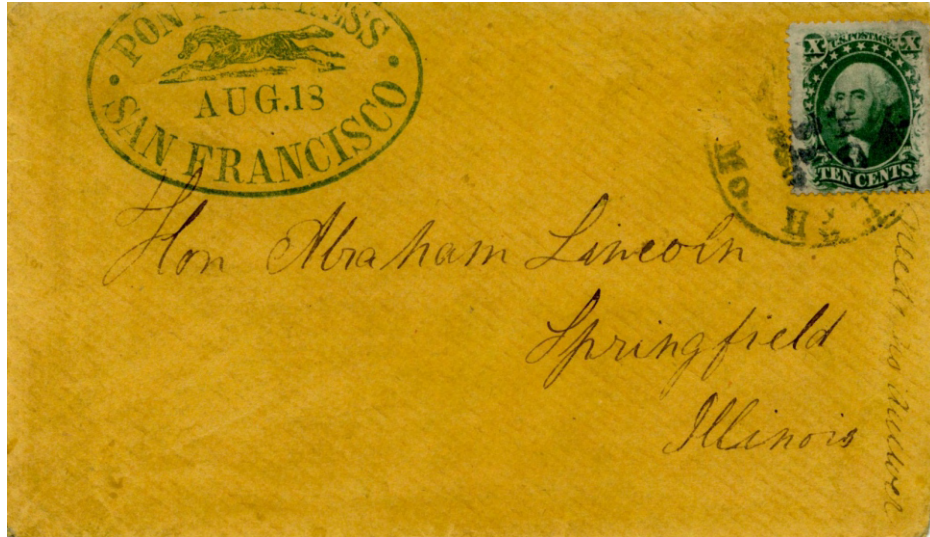 PONY EXPRESS
AUG.18
SAN FRANCISCO
X U.S. POSTAGE X
TEN CENTS
Mo
H
Hon Abraham Lincoln
Springfield
Illinois
Needs no Answer